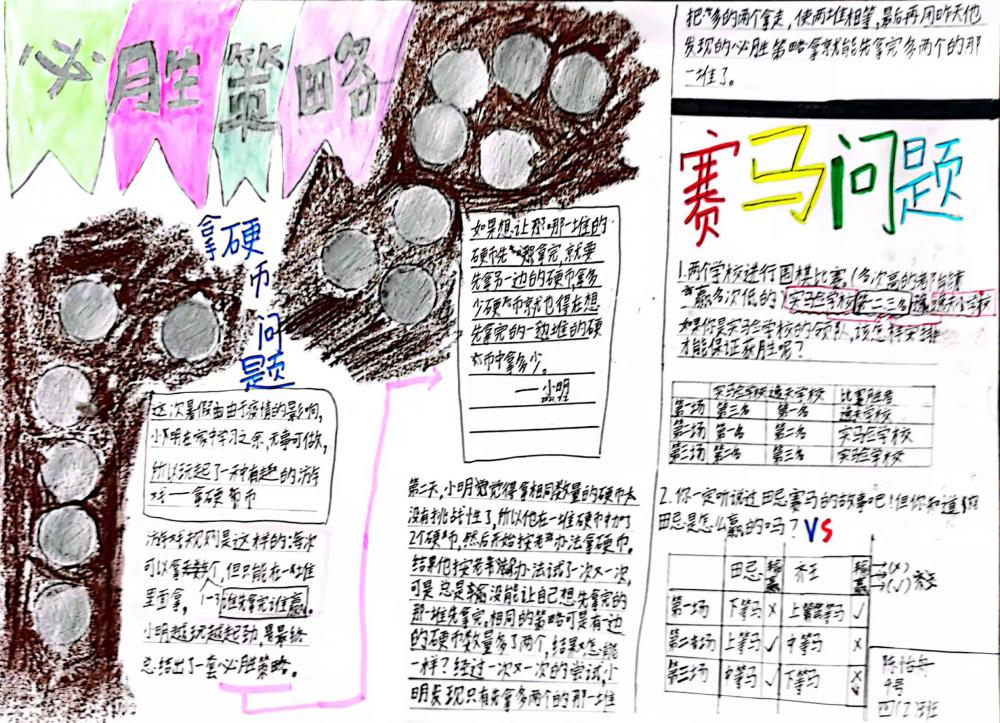 必胜策略
拿硬币问题
这次暑假由由于疫情的影响,
小明在家中学习之余,无事可做,
所以玩起了一种有趣的游
戏——拿硬币
游戏规则是这样的:每次
可以拿1~3个,但只能在一堆
里面拿,谁先拿完谁赢。
小明越玩越起劲,最终
总结出了一套必胜策略。
如果想让那一堆的
硬币先拿完,就要
先拿另一边的硬币,拿多
少硬币就也得在想
先拿完的一堆的硬
币中拿多少。
——小明
第二天,小明觉得拿相同数量的硬币太
没有挑战性了,所以他在一堆硬币加了
2个硬币,然后开始按老办法拿硬币。
结果他按老办法试了一次又一次,
可是总是没能让自己想先拿完的
那一堆先拿完,相同的策略可是有一边
的硬币数量多了两个,结果怎能
一样?经过一次又一次的尝试,小
明发现只有先拿多两个的那一堆
把多的两个拿走,使两堆相等,最后再用昨天他
发现的必胜策略拿就能先拿完多两个的那
一堆了。
赛马问题
1.两个学校进行围棋比赛,(名次高的都能
赢名次低的)实验学校(第二三名)逸夫小学校
如果你是实验学校的领队,该怎样安排
才能保证获胜呢?
实验学校 逸夫学校 比赛胜者
第一场 第三名 第一名 逸夫学校
第二场 第一名 第二名 实验学校
第三场 第二名 第三名 实验学校
2.你一定听说过田忌赛马的故事吧!但你知道
田忌是怎么赢的吗? VS
田忌 输赢 齐王 输赢 →(×)
→(√) 齐王
第一场 下等马 × 上等马 √
第二场 上等马 √ 中等马 ×
第三场 中等马 √ 下等马 ×
9号